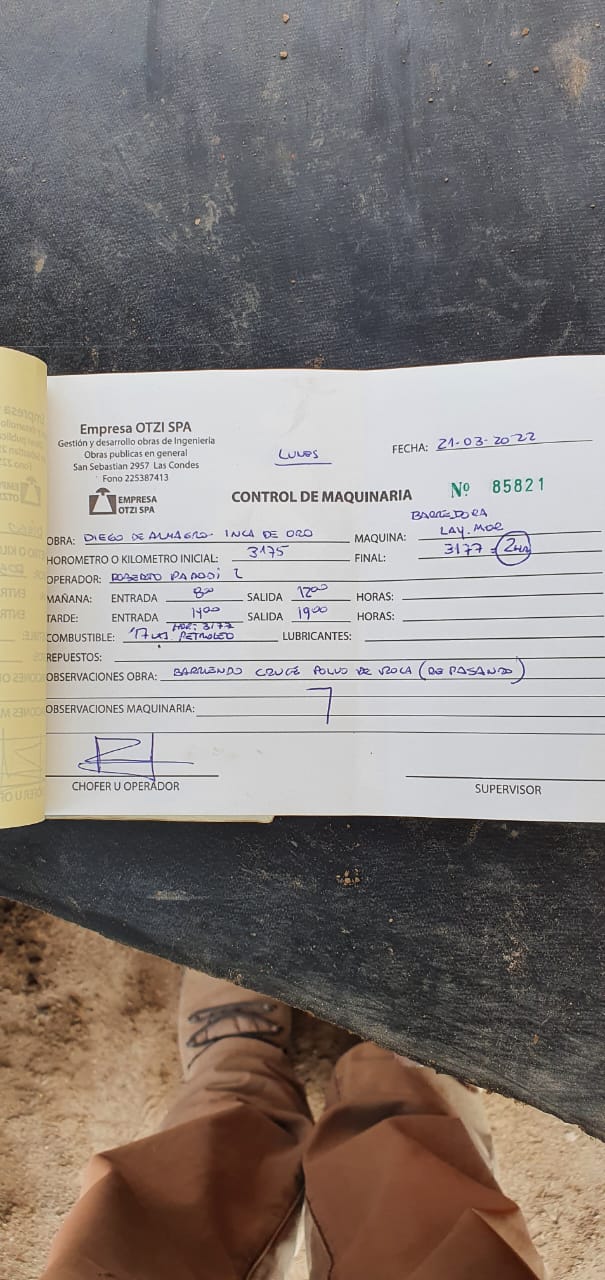 Empresa OTZI SPA
Gestión y desarrollo obras de Ingenieria
Obras publicas en general
San Sebastian 2957 Las Condes
Fono 225387413
EMPRESA
OTZI SPA
LUNES
FECHA: 21-03-2022
CONTROL DE MAQUINARIA
Nº 85821
OBRA: DIEGO DE ALMAGRO - INCA DE ORO
MAQUINA: BARREDORA
LAY-MOR
HOROMETRO O KILOMETRO INICIAL: 3175
FINAL: 3177 = 2HR
OPERADOR: ROBERTO PARODI
MAÑANA: ENTRADA 800 SALIDA 1200 HORAS:
TARDE: ENTRADA 1400 SALIDA 1900 HORAS:
HOR: 3177
COMBUSTIBLE: 17 LTS. PETROLEO LUBRICANTES:
REPUESTOS:
OBSERVACIONES OBRA: BARRIENDO CRUCE POLVO DE ROCA (REPASANDO)
OBSERVACIONES MAQUINARIA:
CHOFER U OPERADOR
SUPERVISOR